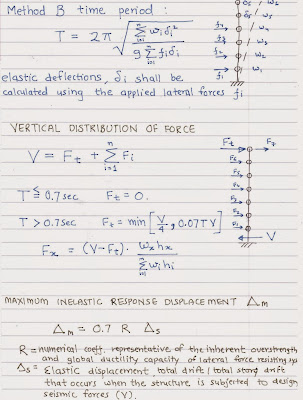 Method B time period :
T = 2π √( Σ wᵢδᵢ² / g Σ fᵢδᵢ )
elastic deflections, δi shall be
calculated using the applied lateral forces fi
VERTICAL DISTRIBUTION OF FORCE
V = Ft + Σ Fi
T ≤ 0.7sec Ft = 0.
T > 0.7sec Ft = min [ V/4 , 0.07TV ]
Fx = (V-Ft). wxhx / Σ wihi
V
MAXIMUM INELASTIC RESPONSE DISPLACEMENT Δm
Δm = 0.7 R Δs
R = numerical coeff. representative of the inherent overstrength
and global ductility capacity of lateral force resisting sys
Δs = Elastic displacement total drift / total story drift
that occurs when the structure is subjected to design
seismic forces (V).